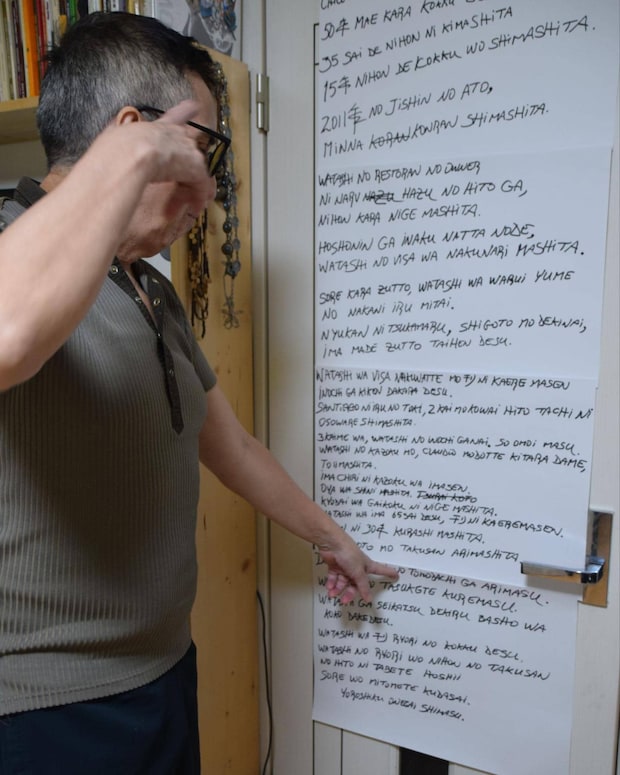 50年 MAE KARA KOKKU
35 SAI DE NIHON NI KIMASHITA
15年 NIHON DE KOKKU WO SHIMASHITA.
2011年 NO JISHIN NO ATO,
MINNA KORAN KONRAN SHIMASHITA.
WATASHI NO RESTORAN NO OWNER
NI NARU HAZU HAZU NO HITO GA,
NIHON KARA NIGE MASHITA.
HOSHONIN GA INAKU NATTA NODE,
WATASHI NO VISA WA NAKUNARI MASHITA.
SORE KARA ZUTTO, WATASHI WA WARUI YUME
NO NAKANI IRU MITAI.
NYUKAN NI TSUKAMARU, SHIGOTO MO DEKINAI,
IMA MADE ZUTTO TAIHON DESU.
WATASHI WA VISA NAKUNATTE MO チリ NI KAERE MASEN
INOCHI GA KIKEN DAKARA DESU.
SANTIAGO NI IRU NO TOKI, 2 KAI MO KOWAI HITO TACHI NI
OSOWARE SHIMASHITA.
3 KAIME WA, WATASHI NO INOCHI GA NAI. SO OMOI MASU.
WATASHI NO KAZOKU MO, CLAUDIO MODOTTE KITARA DAME,
TO IIMASHITA.
IMA CHIRI NI KAZOKU WA IMASEN.
OYA WA SHINI MASHITA. TSURAI KOTO
KYODAI WA GAIKOKU NI NIGE MASHITA.
WATASHI WA IMA 65 SAI DESU, チリ NI KAEREMASEN.
NI 30年 KURASHI MASHITA.
MO TAKUSAN ARIMASHITA
NO TOMODACHI GA ARIMASU.
TASUKETE KUREMASU.
GA SEIKATSU DEKIRU BASHO WA
KOKO DAKE DESU.
WATASHI WA チリ RYORI NO KOKKU DESU.
WATASHI NO RYORI WO NIHON NO TAKUSAN
NO HITO NI TABETE HOSHII
SORE WO MITOMETE KUDASAI.
YOROSHIKU ONEGAI SHIMASU.